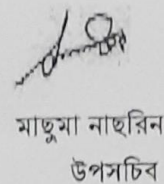 মাছুমা নাছরিন
উপসচিব